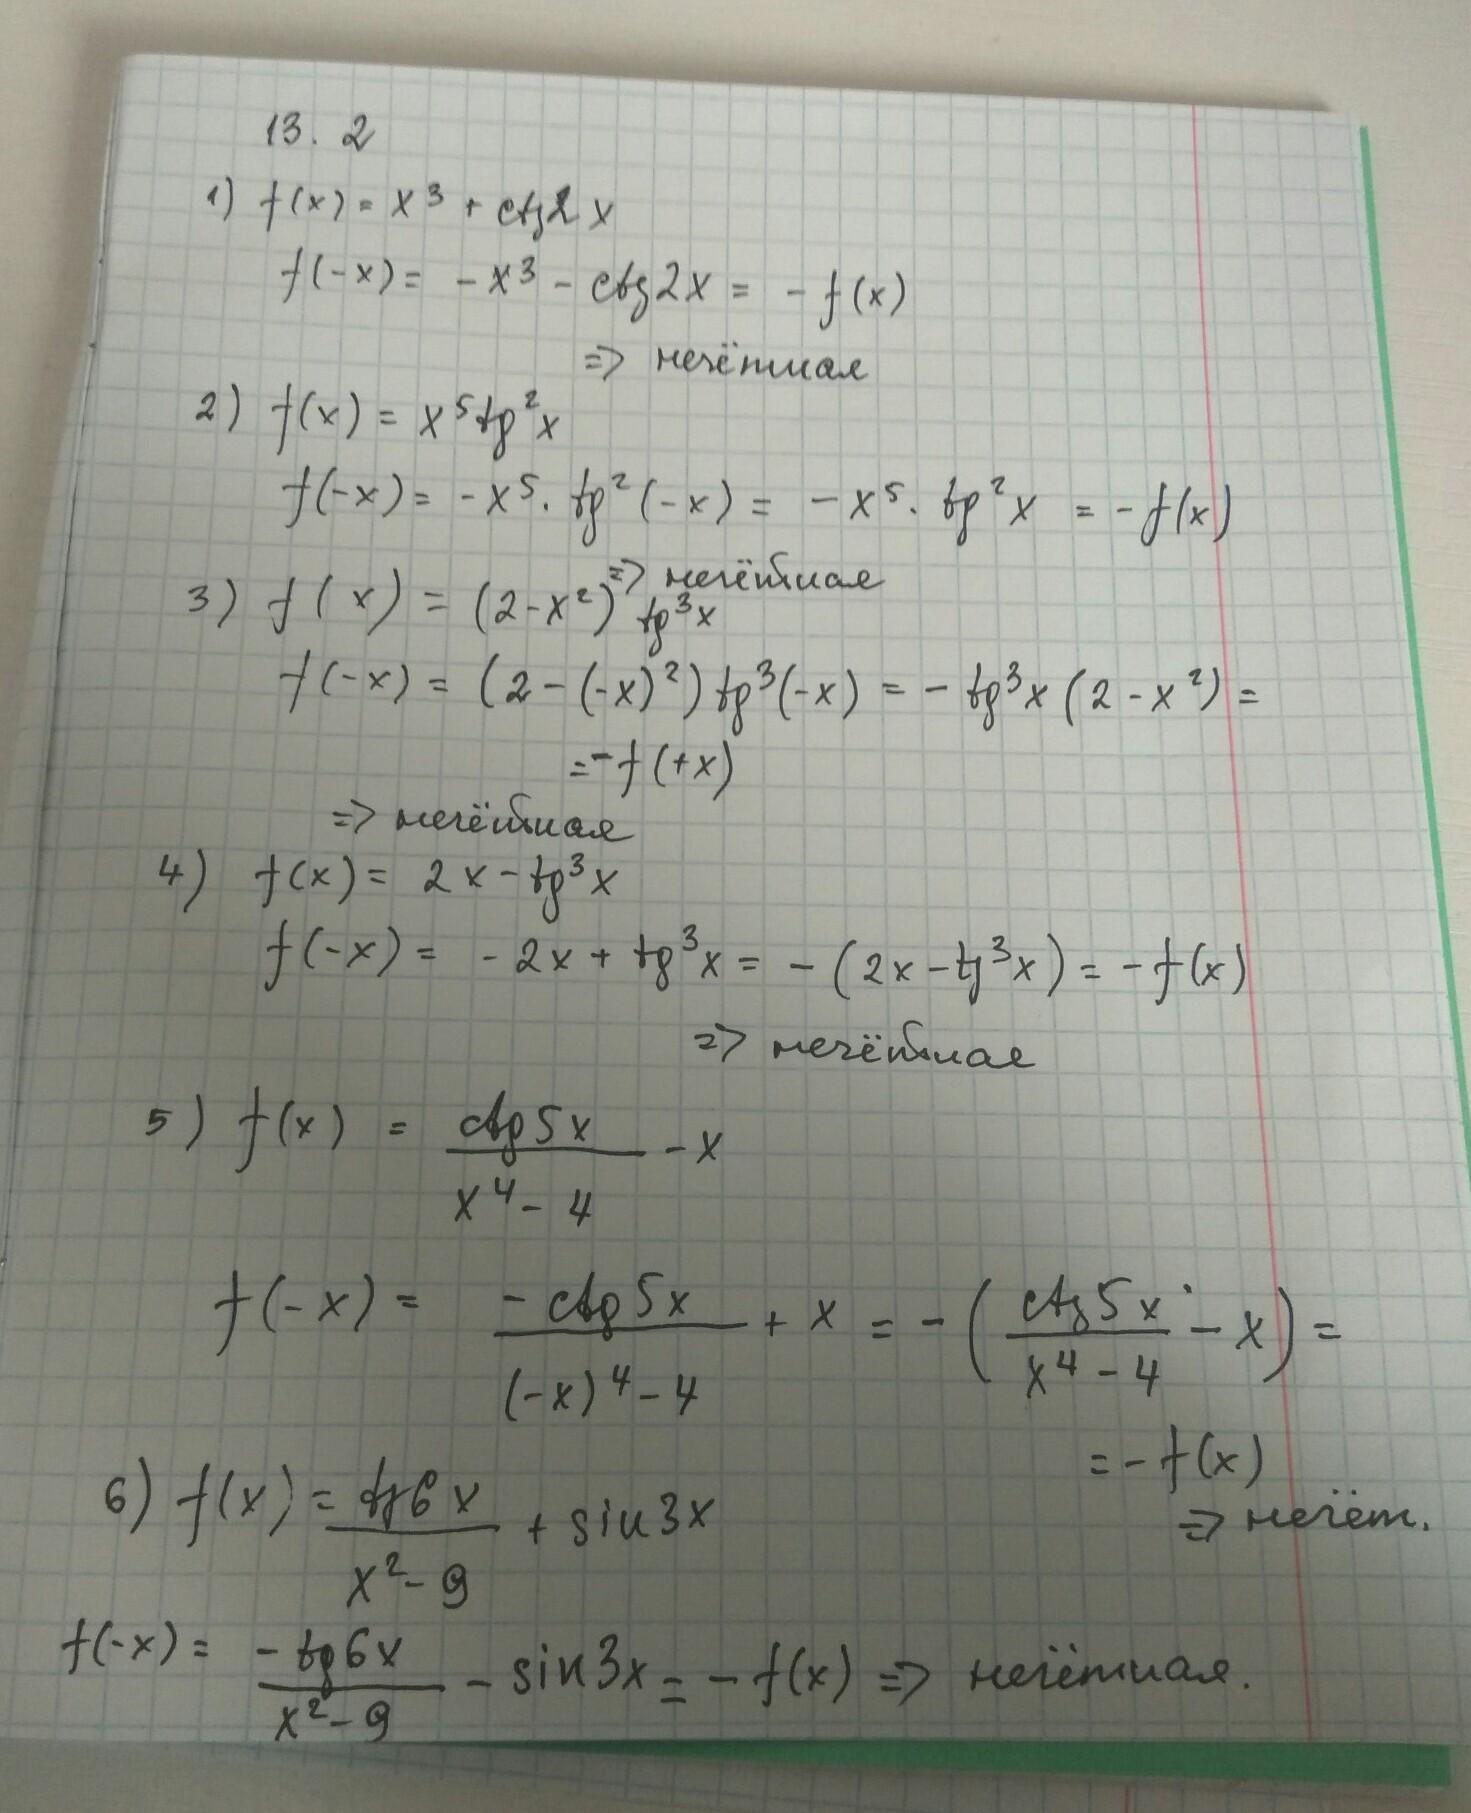 13. 2
1) f(x) = x³ + ctg2x
f(-x) = -x³ - ctg2x = -f(x)
=> нечётная
2) f(x) = x⁵tg²x
f(-x) = -x⁵ · tg²(-x) = -x⁵ · tg²x = -f(x)
=> нечётная
3) f(x) = (2-x²) tg³x
f(-x) = (2-(-x)²) tg³(-x) = - tg³x (2-x²) =
= -f(+x)
=> нечётная
4) f(x) = 2x - tg³x
f(-x) = -2x + tg³x = -(2x - tg³x) = -f(x)
=> нечётная
5) f(x) = ctg5x / x⁴ - 4 - x
f(-x) = -ctg5x / (-x)⁴ - 4 + x = -(ctg5x / x⁴ - 4 - x) =
= -f(x)
=> нечёт.
6) f(x) = tg6x / x² - 9 + sin3x
f(-x) = -tg6x / x² - 9 - sin3x = -f(x) => нечётная.